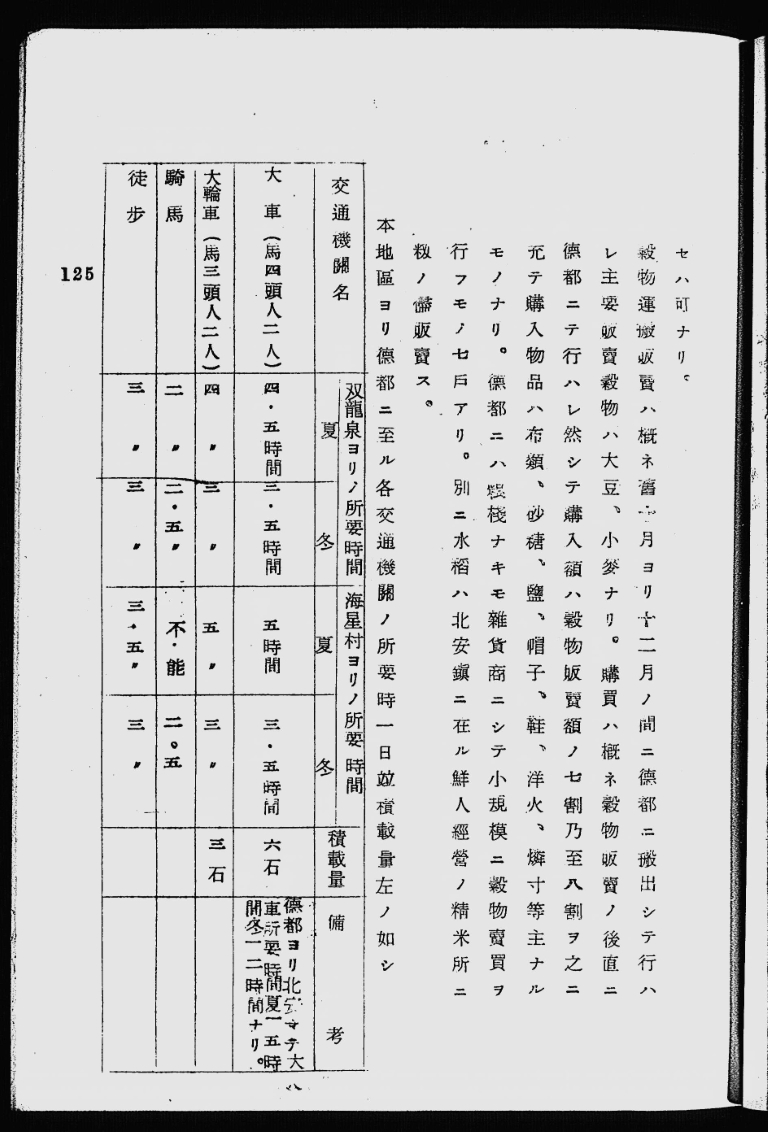 セハ可ナリ。
穀物運搬販賣ハ概ネ舊十月ヨリ十二月ノ間ニ德都ニ搬出シテ行ハ
レ主要販賣穀物ハ大豆、小麥ナリ。購買ハ概ネ穀物販賣ノ後直ニ
德都ニテ行ハレ然シテ購入額ハ穀物販賣額ノ七割乃至八割ヲ之ニ
充テ購入物品ハ布類、砂糖、鹽、帽子、鞋、洋火、燐寸等主ナル
モノナリ。德都ニハ糧棧ナキモ雜貨商ニシテ小規模ニ穀物賣買ヲ
行フモノ七戶アリ。別ニ水稻ハ北安鎭ニ在ル鮮人經營ノ精米所ニ
籾ノ儘販賣ス。
本地區ヨリ德都ニ至ル各交通機關ノ所要時一日竝積載量左ノ如シ
交通機關名
双龍泉ヨリノ所要時間
夏
冬
海星村ヨリノ所要時間
夏
冬
積載量
備考
大車(馬四頭人二人)
四・五時間
三・五時間
五時間
三・五時間
六石
德都ヨリ北安マテ大
車所要時間夏一五時
間冬一二時間ナリ。
大輪車(馬三頭人二人)
四〃
三〃
五〃
三〃
三石
騎馬
二〃
二・五〃
不・能
二。五
徒步
三〃
三〃
三・五〃
三〃
125